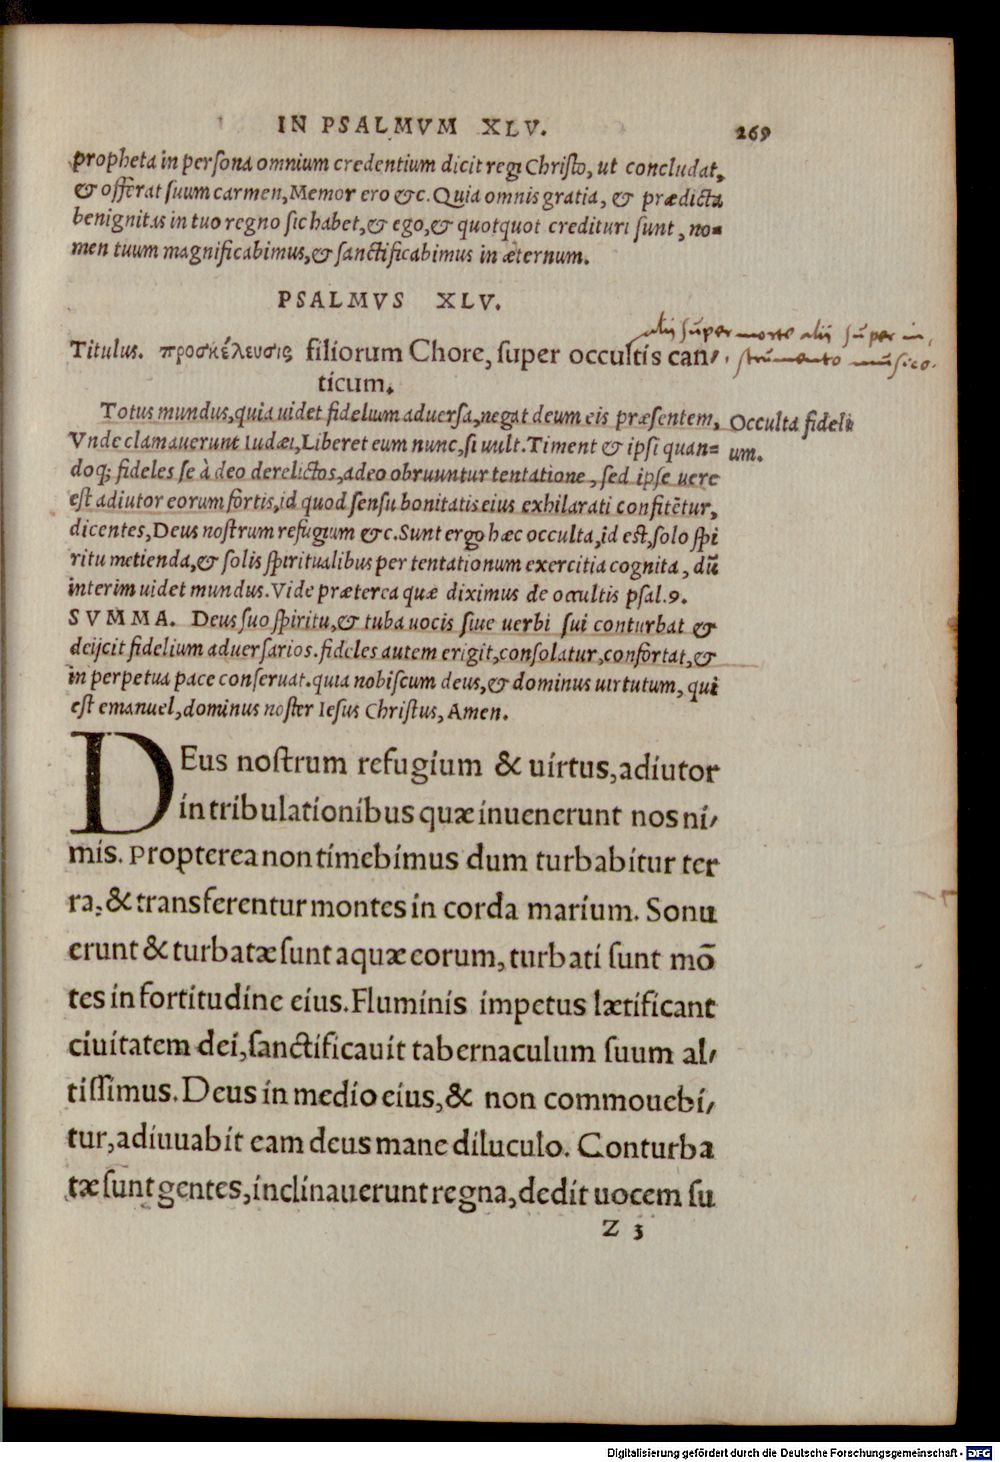 IN PSALMVM XLV. 269
propheta in persona omnium credentium dicit regi Christo, ut concludat,
& offerat suum carmen, Memor ero &c. Quia omnis gratia, & prædicta
benignitas in tuo regno sic habet, & ego, & quotquot credituri sunt, no=
men tuum magnificabimus, & sanctificabimus in æternum.
PSALMVS XLV.
alij super morte alij super in,
strumento musico.
Titulus. προσκέλευσις filiorum Chore, super occultis can,
ticum.
Totus mundus, quia uidet fidelium aduersa, negat deum eis præsentem,
Occulta fideli
um.
Vnde clamauerunt Iudæi, Liberet eum nunc, si uult. Timent & ipsi quan=
doq; fideles se à deo derelictos, adeo obruuntur tentatione, sed ipse uere
est adiutor eorum fortis, id quod sensu bonitatis eius exhilarati confitētur,
dicentes, Deus nostrum refugium &c. Sunt ergo hæc occulta, id est, solo spi
ritu metienda, & solis spiritualibus per tentationum exercitia cognita, dū
interim uidet mundus. Vide præterea quæ diximus de occultis psal.9.
SVMMA. Deus suo spiritu, & tuba uocis siue uerbi sui conturbat &
deijcit fidelium aduersarios. fideles autem erigit, consolatur, confortat, &
in perpetua pace conseruat. quia nobiscum deus, & dominus uirtutum, qui
est emanuel, dominus noster Iesus Christus, Amen.
DEus nostrum refugium & uirtus, adiutor
in tribulationibus quæ inuenerunt nos ni,
mis. Propterea non timebimus dum turbabitur ter
ra, & transferentur montes in corda marium. Sonu
erunt & turbatæ sunt aquæ eorum, turbati sunt mō
tes in fortitudine eius. Fluminis impetus lætificant
ciuitatem dei, sanctificauit tabernaculum suum al,
tissimus. Deus in medio eius, & non commouebi,
tur, adiuuabit eam deus mane diluculo. Conturba
tæ sunt gentes, inclinauerunt regna, dedit uocem su
Z 3
Digitalisierung gefördert durch die Deutsche Forschungsgemeinschaft - DFG